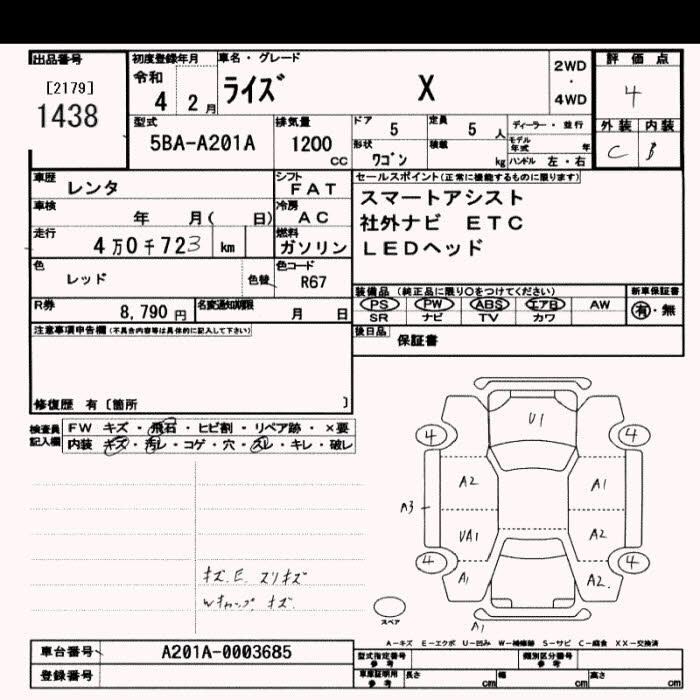 出品番号 初度登録年月 車名・グレード 2WD ・ 4WD 評価点
[2179]
1438
令和
4 2月 ライズ X 4
型式 排気量 ドア 5 定員 5 人 ディーラー・並行 外装 内装
5BA-A201A 1200 CC 形状 ワゴン 積載 kg モデル年式 年 ハンドル 左・右 C B
車歴 レンタ シフト FAT セールスポイント(正常に機能するものに限ります)
車検 年 月( 日) 冷房 AC スマートアシスト
社外ナビ ETC
走行 4万0千723 km 燃料 ガソリン LEDヘッド
色 レッド 色替 色コード R67
装備品 (純正品に限り○をつけてください) 新車保証書
PS PW ABS エアB AW 有・無
SR ナビ TV カワ
R券 8,790円 名変通知期限 月 日
後日品 保証書
注意事項申告欄(不具合内容等は具体的に記入して下さい)
修復歴 有〔箇所 〕
検査員記入欄 FW キズ・飛石・ヒビ割・リペア跡・×要
内装 キズ・汚レ・コゲ・穴・スレ・キレ・破レ
U1
4 4
A2 A1
A3
UA1 A2
4 4
A1 A2
A1
キズ.E. スリキズ
Wキャップ.キズ.
スペア
A-キズ E-エクボ U-凹み W-補修跡 S-サビ C-腐食 XX-交換済
車台番号 A201A-0003685
登録番号
型式指定番号 参考 類別区分番号 参考
車庫証明用 参考 長さ cm 幅 cm 高さ cm